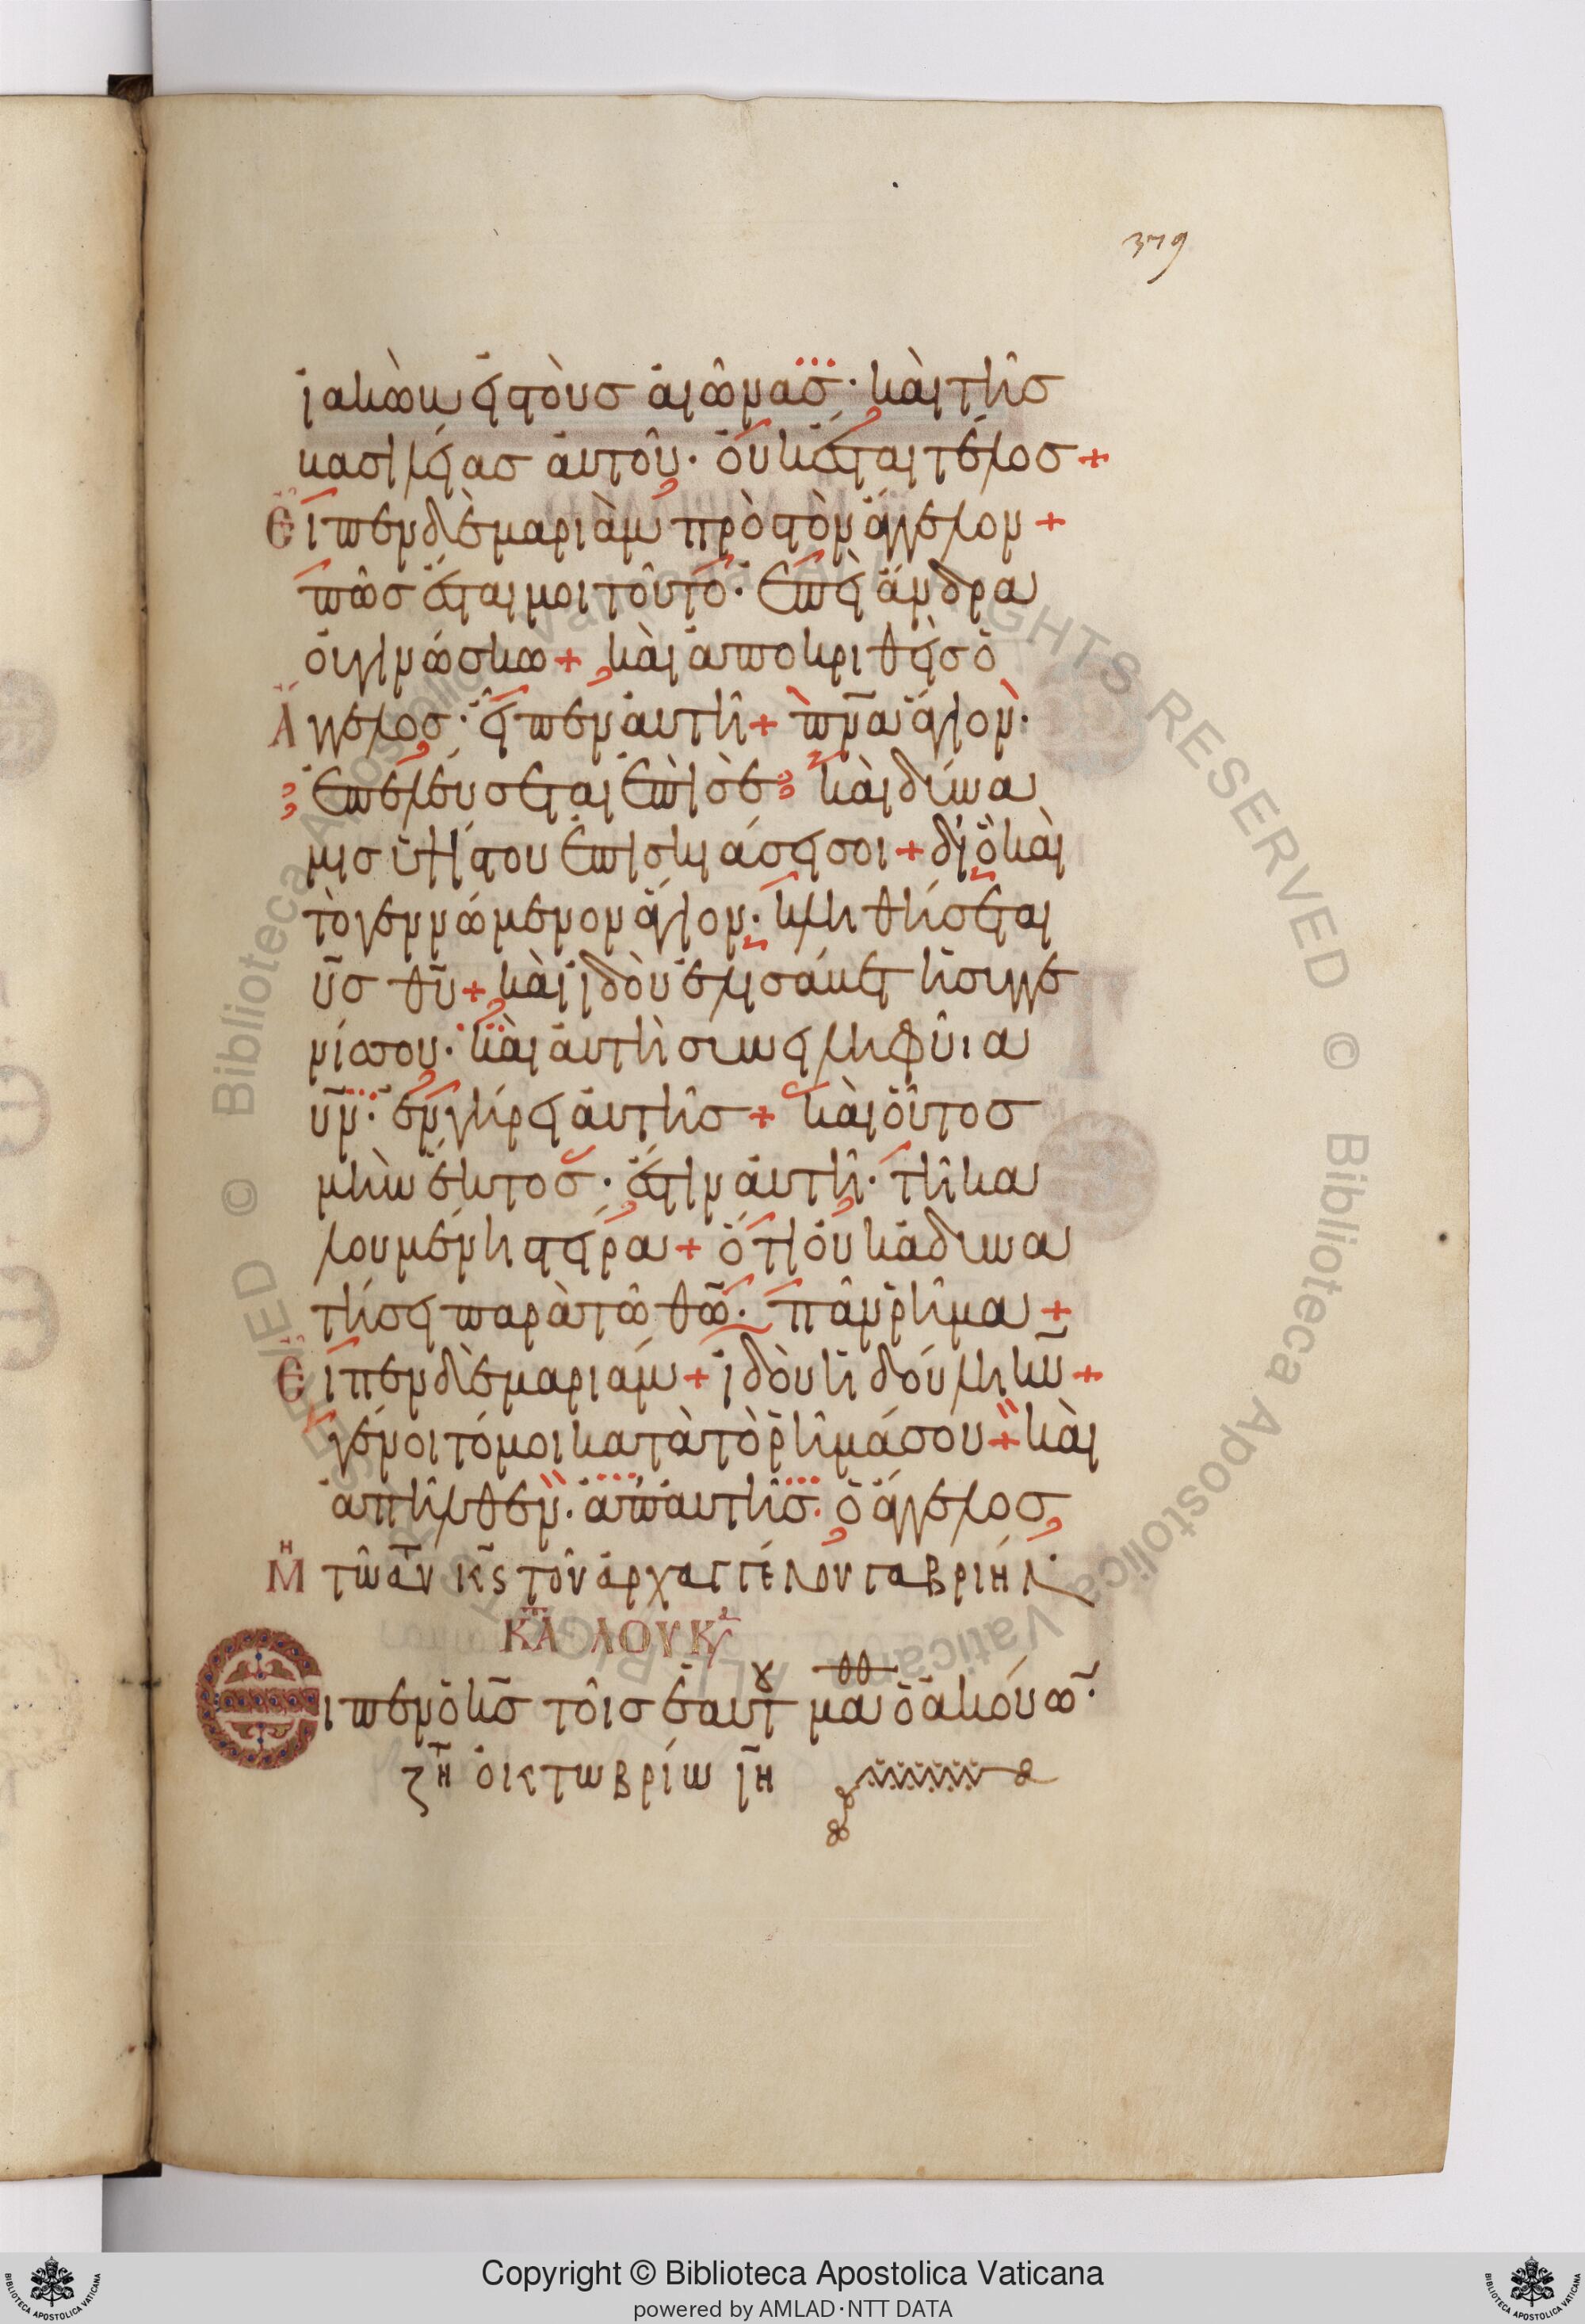 379
ϊακὼβ εἰς τοὺς ἀιῶνας· κὰι τῆς
βασιλείας ἀυτοῦ· ὀυκ ἔσται τέλος +
Εἶπεν δὲ μαριὰμ πρὸς τὸν ἄγγελον +
πῶς ἔσται μοι τοῦτο· ἐπεὶ ἄνδρα
ὀυ γινώσκω + κὰι ἀποκριθεὶς ὁ
Ἄγγελος· εἶπεν ἀυτῆ + π̅ν̅α̅ ἅγιον·
ἐπελέυσεται ἐπὶ σὲ κὰι δύνα
μις ὑψίστου ἐπισκιάσει σοι + διὸ κὰι
τὸ γεννώμενον ἅγιον· κληθήσεται
υ̅ς̅ θ̅υ̅ + κὰι ϊδοὺ ἐλισάβετ ἡ συγγε
νίς σου· κὰι ἀυτὴ συνειληφῦια
υ̅ν̅· ἐν γήρει ἀυτῆς + κὰι οὗτος
μὴν ἕκτος· ἐστὶν ἀυτῆ· τῆ κα
λουμένη στείρα + ὅτι ὀυκ ἀδυνα
τήσει παρὰ τῶ θ̅ω̅· πᾶν ῥῆμα +
Εἶπεν δὲ μαριάμ + ϊδοὺ ἡ δούλη κ̅υ̅ +
γένοιτό μοι κατὰ τὸ ῥῆμά σου + κὰι
ἀπῆλθεν· ἀπ' ἀυτῆς· ὁ ἄγγελος
Μη τῶ ἀυτ κ̅ς̅ τοῦ ἀρχαγγέλου γαβριήλ·
ΚΑΤΑ ΛΟΥΚ
Εἶπεν ὁ κ̅ς̅ τοῖς ἑαυτοῦ μαθθ ὁ ἀκούων·
ζητ ὀκτωβρίω ιη
Copyright © Biblioteca Apostolica Vaticana
powered by AMLAD·NTT DATA